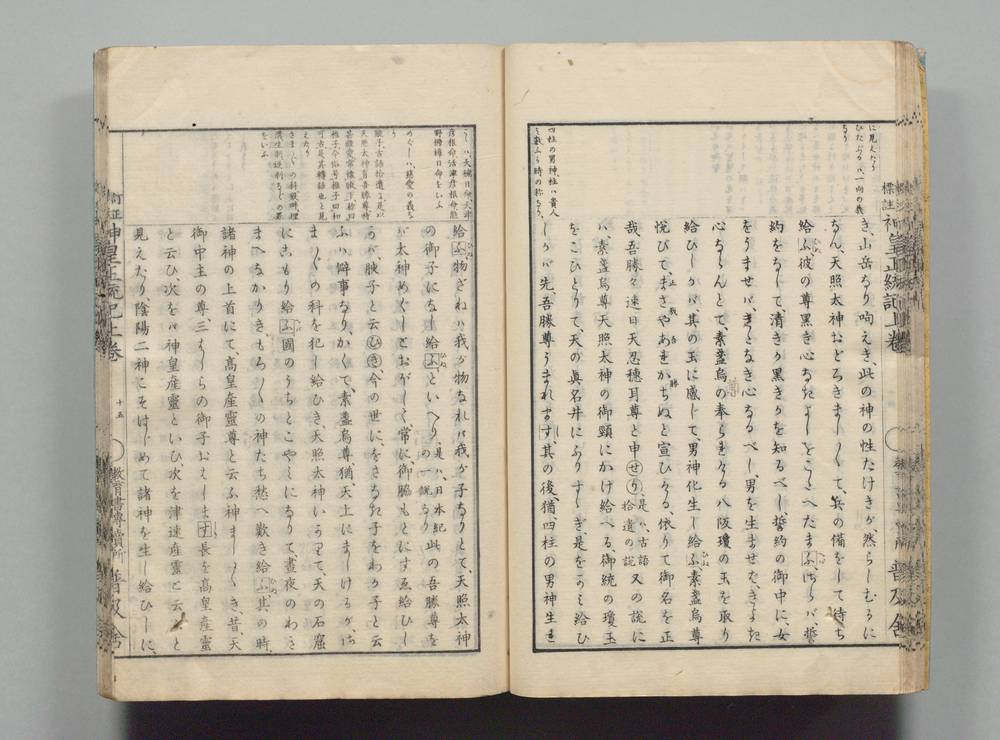 に見えたり
ひたぶるハ一向の義
なり
四柱の男神柱ハ貴人
を数ふる時の称なり
標註神皇正統記上巻
普及舎
き、山岳なり呴えき、此の神の性たけきが然らしむるに
なん、天照太神おどろきまし〳〵て、兵の備をして待ち
給ふ彼の尊黒き心なきよしをこたへたまふさらバ、誓
約をなして、清きか黒きかを知るべし、誓約の御中に、女
をうませバ、きたなき心なるべし、男を生ませバ、きよき
心ならんとて、素盞烏の奉られける八阪瓊の玉を取り
給ひしかバ其の玉に感じて、男神化生し給ふ素盞烏尊
悦びて、まさやあれかちぬと宣ひける、依りて御名を正
正哉吾勝
哉吾勝々速日天忍穂耳尊と申せり是ハ、古語拾遺の説又の説に
ハ素盞烏尊天照太神の御頸にかけ給へる、御統の瓊玉
をこひとりて、天の眞名井にふりすゝぎ、是をかみ給ひ
しかバ、先、吾勝尊うまれます其の後、猶、四柱の男神生ま
うしハ天穂日命天津
彦根命活津彦根命熊
野櫲樟日命をいふ
めぐしハ慈愛の義な
り
腋子古語拾遺に是以
天照太神育吾勝尊特
甚鍾愛常懐腋下称曰
腋子今俗号稚子曰和
可古是其転語也と見
えたり
をいふ
給ふ物ざねハ我が物なれバ我が子なりとて、天照太神
の御子になし給ふといへり、是ハ、日本紀の一説なり此の吾勝尊を
バ太神めぐしとおぼして常に、御脇もとにすゑ給ひし
かバ、腋子と云ひき、今の世に、をさなき子をわか子と云
ふハ、僻事なりかくて、素盞烏尊猶、天上にましけるがさ
ま〴〵の科を犯し給ひき、天照太神いかりて、天の石窟
にこもり給ふ國のうちとこやみになりて、晝夜のわき
まへなかりき、もろ〳〵の神たち愁へ歎き給ふ其の時
諸神の上首にて、高皇産靈尊と云ふ神まし〳〵き、昔、天
御中主の尊、三はしらの御子おはします長を高皇産靈
と云ひ、次をバ神皇産靈といひ、次を津速産靈と云ふと
見えたり陰陽二神こそはじめて諸神を生し給ひしに、
訂正神皇正統記上巻
十五
教育書専賣所
普及舎